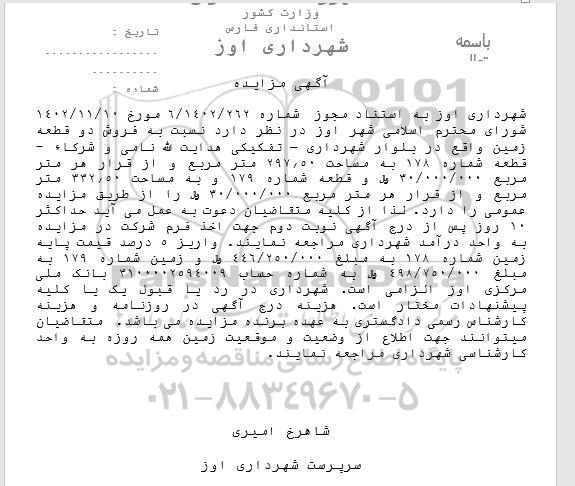 وزارت کشور
استانداری فارس
شهرداری اوز
باسمه
تاریخ :
.................
..........
شماره :
آگهی مزایده
شهرداری اوز به استناد مجوز شماره ۶/۱۴۰۲/۲۶۲ مورخ ۱۴۰۲/۱۱/۱۰
شورای محترم اسلامی شهر اوز در نظر دارد نسبت به فروش دو قطعه
زمین واقع در بلوار شهرداری – تفکیکی هدایت الله نامی و شرکاء –
قطعه شماره ۱۷۸ به مساحت ۲۹۷,۵۰ متر مربع و از قرار هر متر
مربع ۳۰/۰۰۰/۰۰۰ ریال و قطعه شماره ۱۷۹ و به مساحت ۳۳۲,۵۰ متر
مربع و از قرار هر متر مربع ۳۰/۰۰۰/۰۰۰ ریال را از طریق مزایده
عمومی را دارد. لذا از کلیه متقاضیان دعوت به عمل می آید حداکثر
۱۰ روز پس از درج آگهی نوبت دوم جهت اخذ فرم شرکت در مزایده
به واحد درآمد شهرداری مراجعه نمایند. واریز ۵ درصد قیمت پایه
زمین شماره ۱۷۸ به مبلغ ۴۴۶/۲۵۰/۰۰۰ ریال و زمین شماره ۱۷۹ به
مبلغ ۴۹۸/۷۵۰/۰۰۰ ریال به شماره حساب ۳۱۰۰۰۰۲۵۹۴۰۰۹ بانک ملی
مرکزی اوز الزامی است. شهرداری در رد یا قبول یک یا کلیه
پیشنهادات مختار است. هزینه درج آگهی در روزنامه و هزینه
کارشناس رسمی دادگستری به عهده برنده مزایده می باشد. متقاضیان
میتوانند جهت اطلاع از وضعیت و موقعیت زمین همه روزه به واحد
کارشناسی شهرداری مراجعه نمایند.
پایگاه اطلاع رسانی مناقصه و مزایده
۰۲۱-۸۸۳۴۹۶۷۰-۵
شاهرخ امیری
سرپرست شهرداری اوز